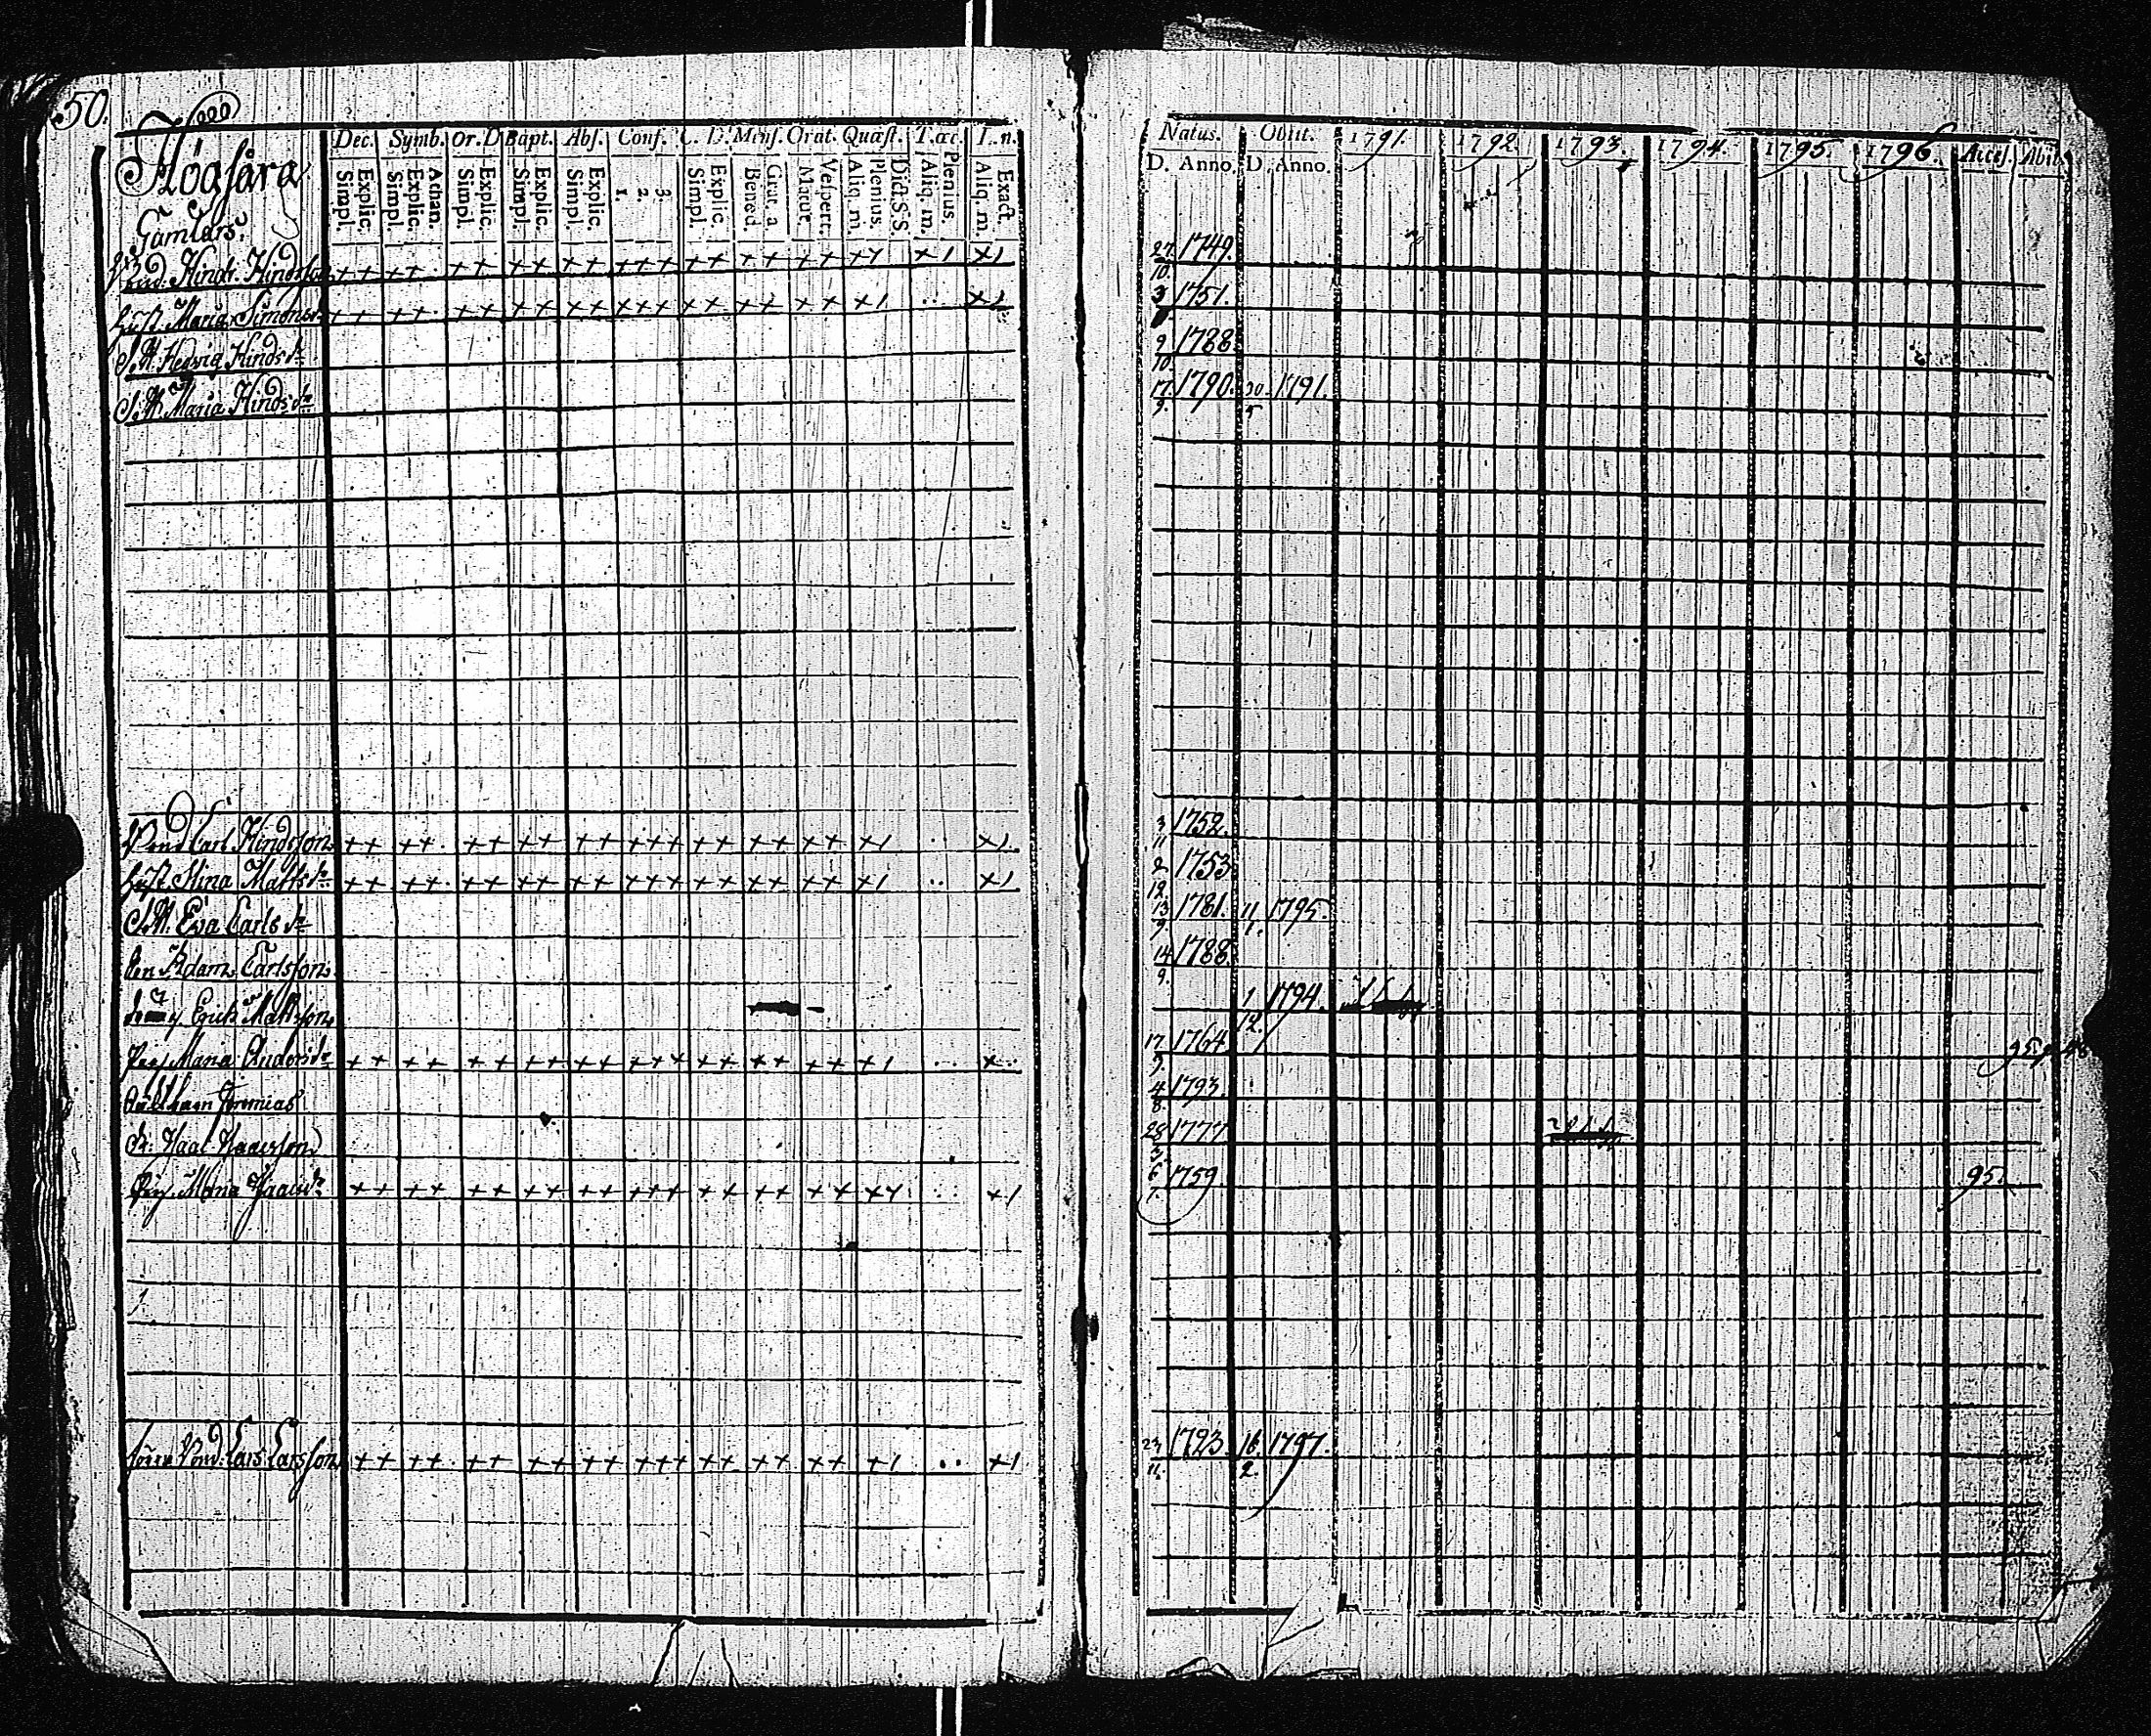 50.
Högsåra
Gamlars.
Dec. Symb. Or. D Bapt. Abs. Conf. C. D. Mens. Orat. Quæst. T. œc. I. n.
Simpl. Explic. Simpl. Explic. Athan. Simpl. Explic. Simpl. Explic. Simpl. Explic. 1. 2. 3. Simpl. Explic. Bened. Grat. a Matut. Vespert. Aliq. m. Plenius. Dict. S. S. Aliq. m. Plenius. Aliq. m. Exact.
Natus. Obiit. 1791. 1792. 1793. 1794. 1795. 1796. Accес. Abit.
D. Anno. D. Anno.
Hindr. Hindrsson ++ ++ ++ ++ ++ +++ ++ ++ ++ ×1 ×1 27. 10. 1749.
Hust. Maria Simonsdr ++ ++ ++ ++ ++ +++ ++ ++ ++ ×1 .. ×1 3 1751.
S.M. Hedvig Hindsdr 9 10. 1788.
S.M. Maria Hindsdr 17. 9. 1790. 30. 5 1791.
Bond Carl Hindsson ++ ++ ++ ++ ++ +++ ++ ++ ++ ×1 .. ×1. 3 11 1752.
Hust. Stina Mattsdr ++ ++ ++ ++ ++ +++ ++ ++ ++ ×1 .. ×1 2 12. 1753
S.M. Eva Carlsdr 13 9 1781. 11. 1. 1795.
Son Adam Carlsson 14 9. 1788.
Erik Mattsson 1 12. 1794.
Pig. Maria Andersdr ++ ++ ++ ++ ++ +++ ++ ++ ++ ×1 ... ×.. 17. 9. 1764. 95
Jeremias 4 8. 1793.
28 3. 1777
Pig. Maria ++ ++ ++ ++ ++ +++ ++ ++ ++ ×+ .. ×1 6 1759. 95.
Bond. Lars Larsson ++ ++ ++ ++ ++ +++ ++ ++ ++ ×1 .. ×1 11. 1723. 16 2. 1797.